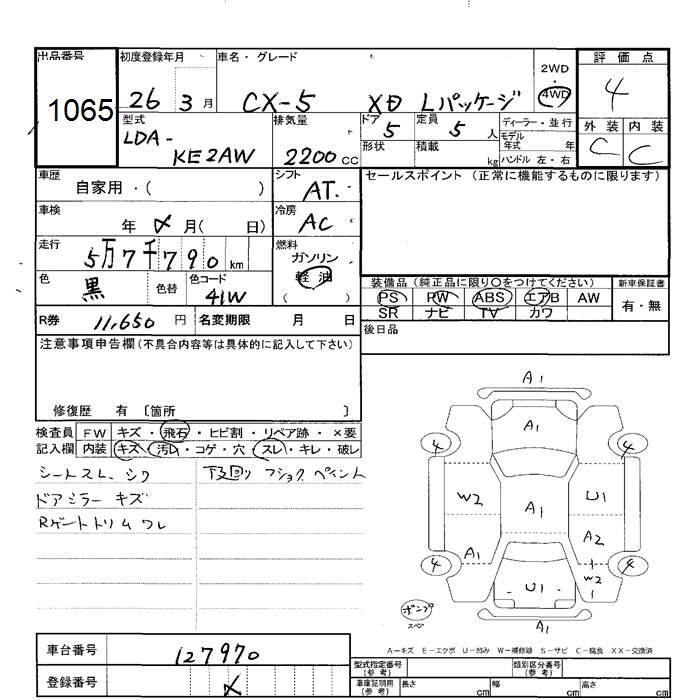 出品番号 初度登録年月 車名・グレード 2WD 4WD 評価点
1065 26 3月 CX-5 XD Lパッケージ 4
型式 排気量 ドア 定員 ディーラー・並行 外装 内装
LDA-KE2AW 2200cc 5 5人 モデル年式 年 C C
形状 積載 kg ハンドル 左・右
車歴 自家用・( ) シフト AT. セールスポイント(正常に機能するものに限ります)
車検 年 メ 月( 日) 冷房 AC
走行 5万7千790km 燃料 ガソリン 軽油 ( )
色 黒 色替 色コード 41W
装備品(純正品に限り○をつけてください) 新車保証書
PS PW ABS エアB AW 有・無
SR ナビ TV カワ
R券 11,650円 名変期限 月 日 後日品
注意事項申告欄(不具合内容等は具体的に記入して下さい)
修復歴 有 〔箇所 〕
検査員 FW キズ・飛石・ヒビ割・リペア跡・×要
記入欄 内装 キズ・汚れ・コゲ・穴・スレ・キレ・破レ
シートスレ、シワ 下回り フショク ペイント
ドアミラー キズ
Rゲートトリム ワレ
A1
A1
4 4
W2 A1 U1
A1 A2
4 W2 4
U1
A1
ポンプ
スペ
A-キズ E-エクボ U-凹み W-補修跡 S-サビ C-腐食 XX-交換済
車台番号 127970
登録番号 メ
型式指定番号(参考) 類別区分番号(参考)
車庫証明用(参考) 長さ cm 幅 cm 高さ cm